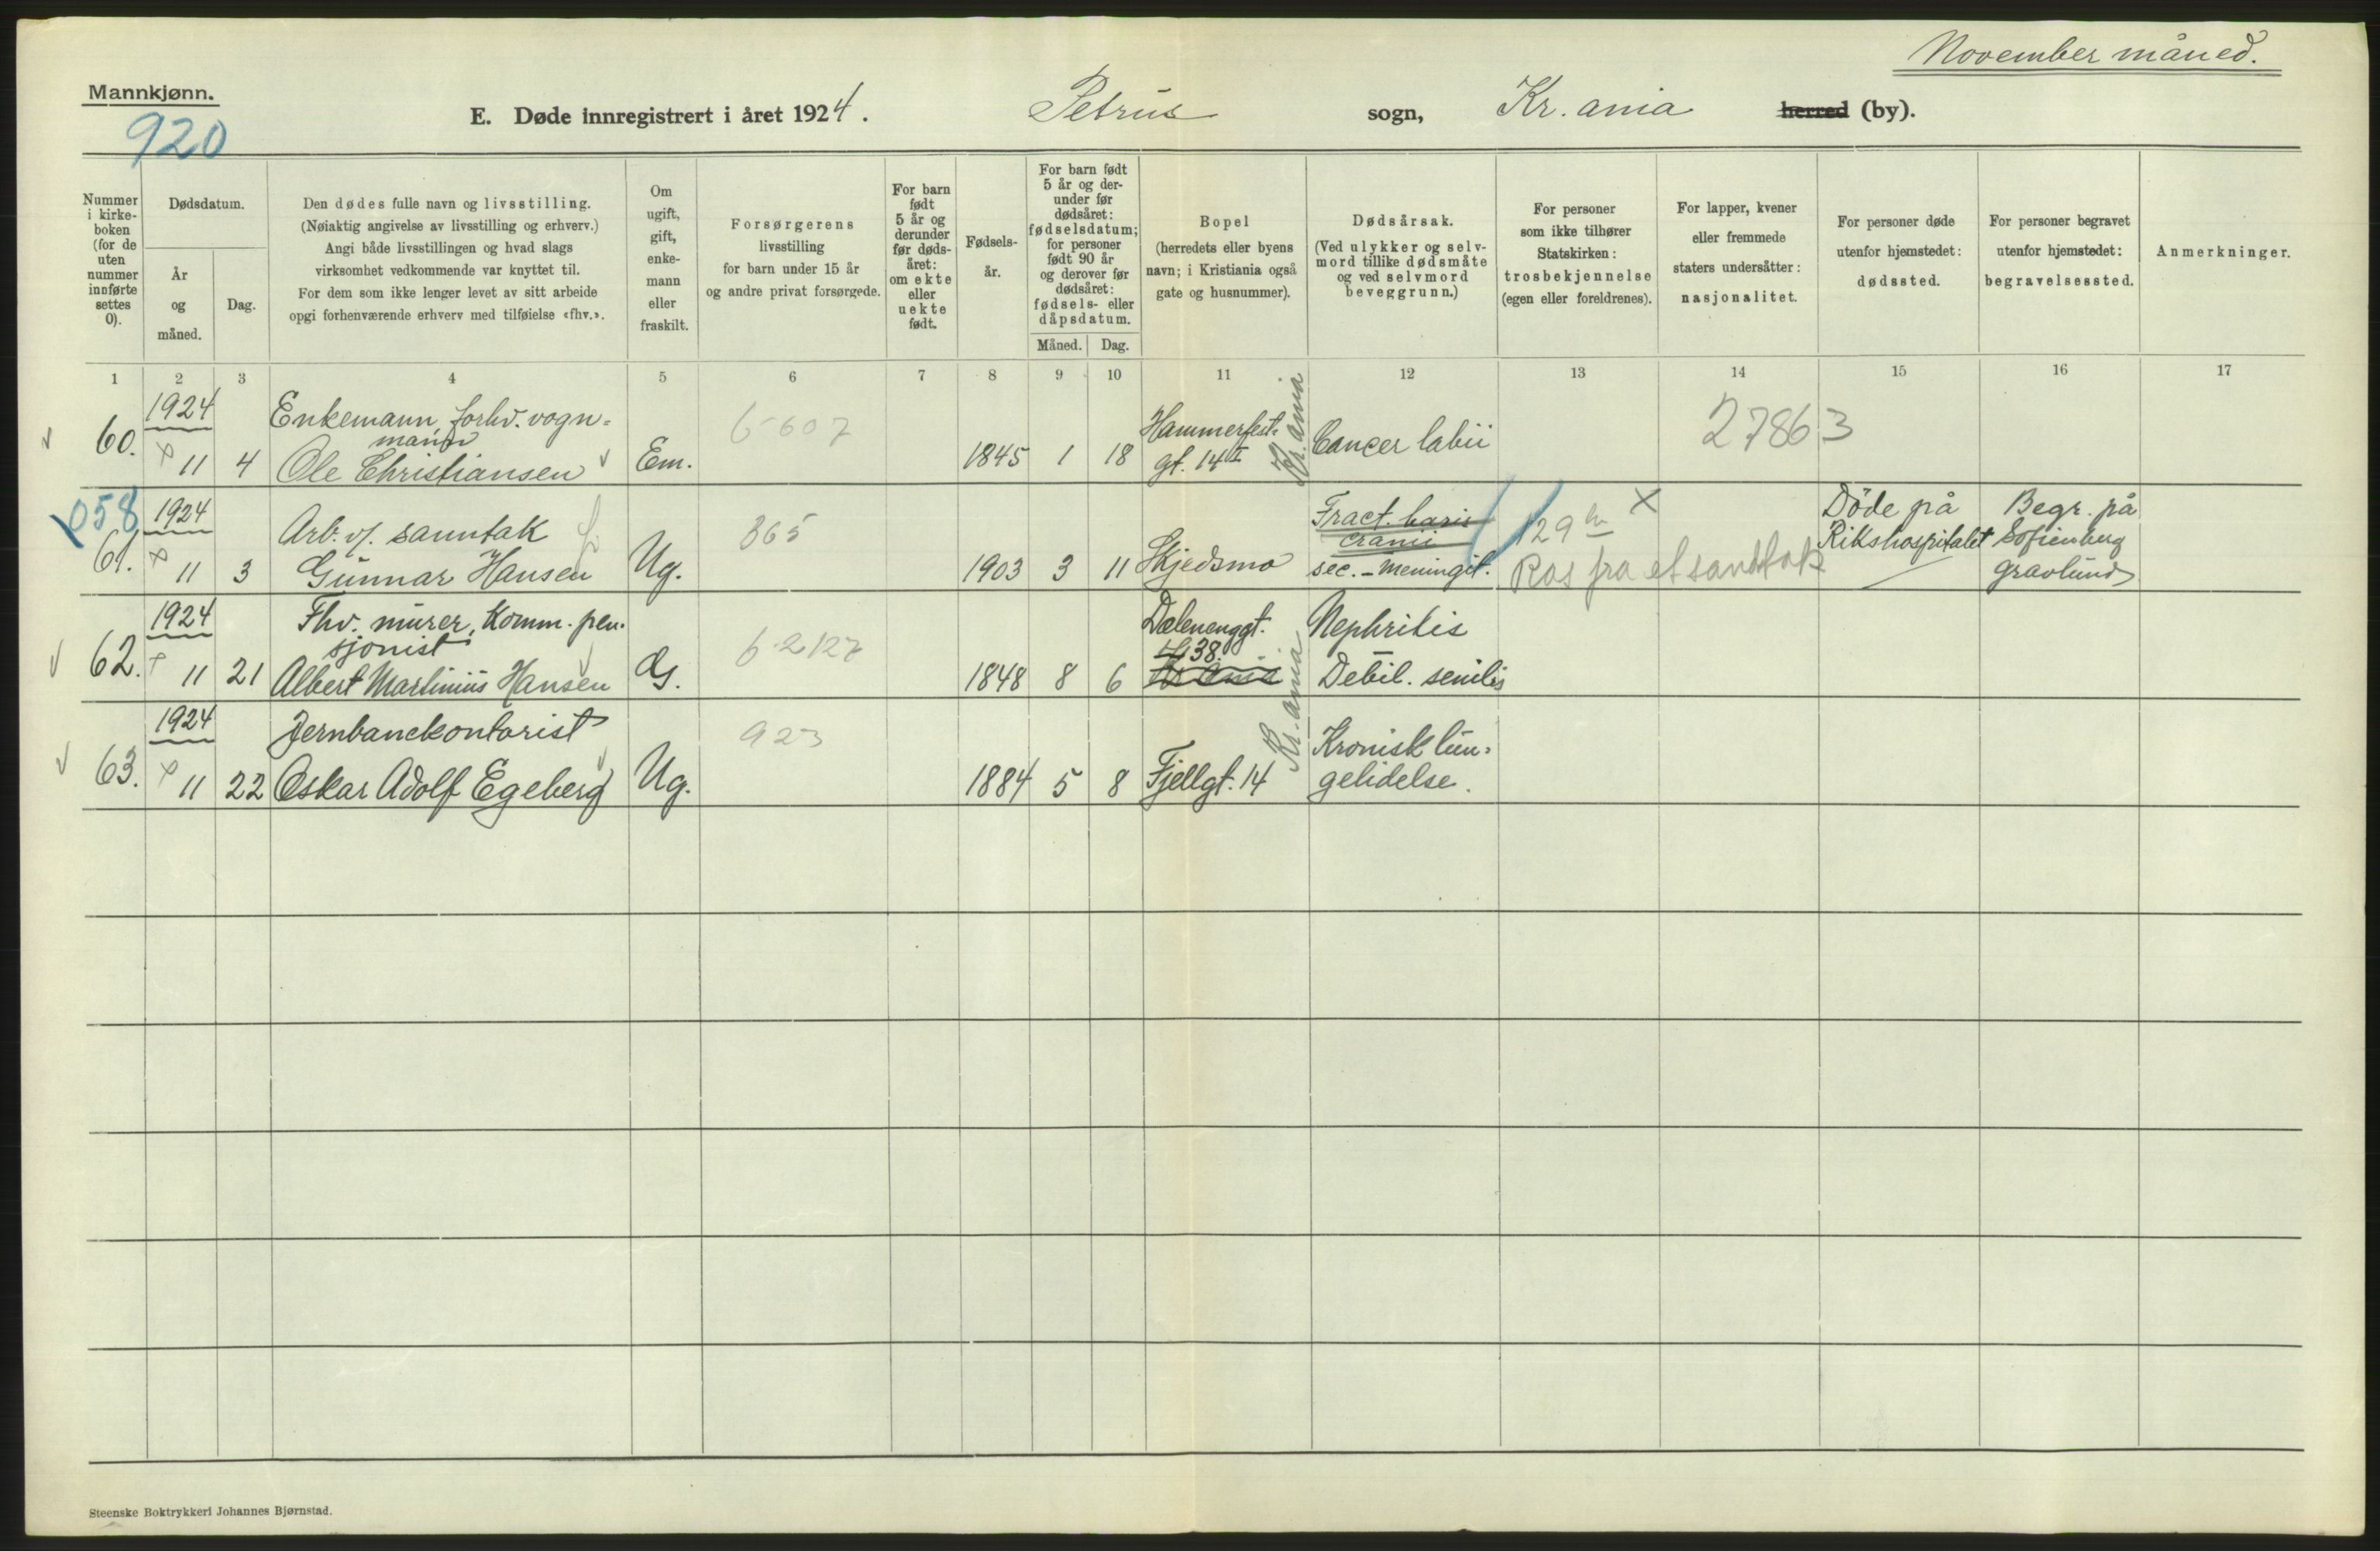 November måned.
Mannkjønn.
920
E. Døde innregistrert i året 1924. Petrus sogn, Kr.ania herred (by).
Nummer i kirkeboken (for de uten nummer innførte settes 0).
Dødsdatum.
År og måned.
Dag.
Den dødes fulle navn og livsstilling.
(Nøiaktig angivelse av livsstilling og erhverv.)
Angi både livsstillingen og hvad slags
virksomhet vedkommende var knyttet til.
For dem som ikke lenger levet av sitt arbeide
opgi forhenværende erhverv med tilføielse «fhv.».
Om ugift, gift, enkemann eller fraskilt.
Forsørgerens
livsstilling
for barn under 15 år
og andre privat forsørgede.
For barn født 5 år og derunder før dødsåret: om ekte eller uekte født.
Fødselsår.
For barn født 5 år og derunder før dødsåret: fødselsdatum; for personer født 90 år og derover før dødsåret: fødsels- eller dåpsdatum.
Måned. Dag.
Bopel
(herredets eller byens
navn; i Kristiania også
gate og husnummer).
Dødsårsak.
(Ved ulykker og selvmord tillike dødsmåte
og ved selvmord
beveggrunn.)
For personer
som ikke tilhører
Statskirken:
trosbekjennelse
(egen eller foreldrenes).
For lapper, kvener
eller fremmede
staters undersåtter:
nasjonalitet.
For personer døde
utenfor hjemstedet:
dødssted.
For personer begravet
utenfor hjemstedet:
begravelsessted.
Anmerkninger.
1 2 3 4 5 6 7 8 9 10 11 12 13 14 15 16 17
60. 1924 11 4
Enkemann, forhv. vogn=
mann
Ole Christiansen
Em.
6-607
1845 1 18
Hammerfest-
gt. 14 I
Kr.ania
Cancer labii
27863
058
61. 1924 11 3
Arb. v/. sanntak
Gunnar Hansen
Ug.
365
1903 3 11
Skjedsmo
Fract. basis
cranii
sec. - meningit.
129
X
Ras fra et sandtak
Døde på
Rikshospitalet
Begr. på
Sofienberg
gravlund
62. 1924 11 21
Fhv. murer, Komm. pen-
sjonist
Albert Martinius Hansen
G.
6-2127
1848 8 6
Dælenenggt.
38.
Kr.ania
Kr.ania
Nephritis
Debil. senilis
63. 1924 11 22
Jernbanekontorist
Oskar Adolf Egeberg
Ug.
923
1884 5 8
Fjellgt. 14
Kronisk lun=
gelidelse.
Steenske Boktrykkeri Johannes Bjørnstad.